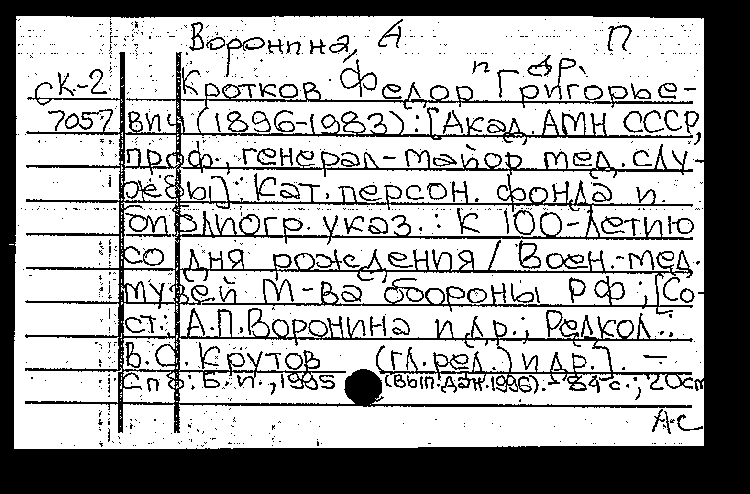 Воронина, А П
и др.
СК-2 Кротков Федор Григорье-
7057 вич (1896-1983): [Акад. АМН СССР,
проф., генерал-майор мед. слу-
жбы]: Кат. персон. фонда и
библиогр. указ.: К 100-летию
со дня рождения / Воен.-мед.
музей М-ва обороны РФ; [Со-
ст.: А.П. Воронина и др.; Редкол.:
В.О. Крутов (гл. ред.) и др.]. —
Спб: Б.и., 1995 (вып. дан. 1996). - 84 с.; 20см
А-С